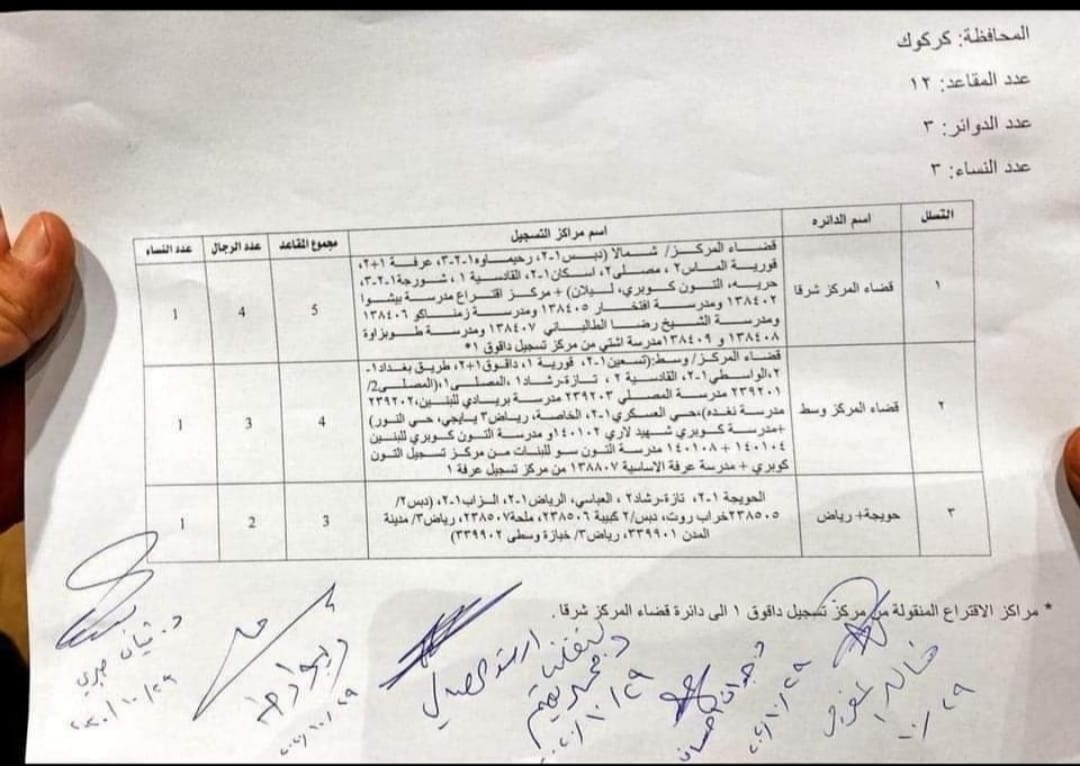 المحافظة: كركوك
عدد المقاعد: ١٢
عدد الدوائر: ٣
عدد النساء: ٣
التسلل اسم الدائره اسم مراكز التسجيل مجموع المقاعد عدد الرجال عدد النساء
١ قضاء المركز شرقا 5 4 1
قضاء المركز/ شمالا (دبس١-٢، رحيماوه١-٢-٣، عرفة ١+٢،
قورية الماس٢ ، مصلى٢، اسكان١-٢، القادسية ١ ، شورجة١-٢-٣،
حريه، التون كوبري، ليلان) + مركز اقتراع مدرسة بيشوا
١٣٨٤٠٢ ومدرسة افتخار ١٣٨٤٠٥ ومدرسة زمناكو ١٣٨٤٠٦
ومدرسة الشيخ رضا الطالباني ١٣٨٤٠٧ ومدرسة طوبزاوة
١٣٨٤٠٨ و ١٣٨٤٠٩مدرسة اشتي من مركز تسجيل داقوق ١*
٢ قضاء المركز وسط 4 3 1
قضاء المركز/ وسط:(تسعين١-٢، قورية ١، داقوق١+٢، طريق بغداد١-
٢،الواسطي١-٢، القادسية ٢ ، تازة-رشاد١ ،المصلى١،(المصلى2/
٢٣٩٢٠١ مدرسة المصلى ٢٣٩٢٠٣ مدرسة بريادي للبنين،٢٣٩٢٠٢
مدرسة نغده)،حي العسكري١-٢، الخاصة، رياض٣ يايجي، حي النور)
+مدرسة كوبري شهيد لاري ١٤٠١٠٢و مدرسة التون كوبري للبنين
١٤٠١٠٤ + ١٤٠١٠٨ مدرسة التون سو للبنات من مركز تسجيل التون
كوبري + مدرسة عرفة الاساسية ١٣٨٨٠٧ من مركز تسجيل عرفة ١
٣ حويجة+ رياض 3 2 1
الحويجة ١-٢، تازة-رشاد٢ ، العباسي، الرياض١-٢، الزاب١-٢، (دبس٢/
٢٣٨٥٠٥خراب روت، دبس/٢ كبيبة ٢٣٨٥٠٦، ملحة٢٣٨٥٠٧، رياض٣/ مدينة
المدن ٣٣٩٩٠١، رياض٣/ خبازة وسطى ٣٣٩٩٠٢)
* مراكز الاقتراع المنقولة من مركز تسجيل داقوق ١ الى دائرة قضاء المركز شرقا .
خالد المفرجي
١٠/٢٩
د. جوان احسان
د. محمد تميم
ارشد الصالحي
ريبوار طه
د. ديلان